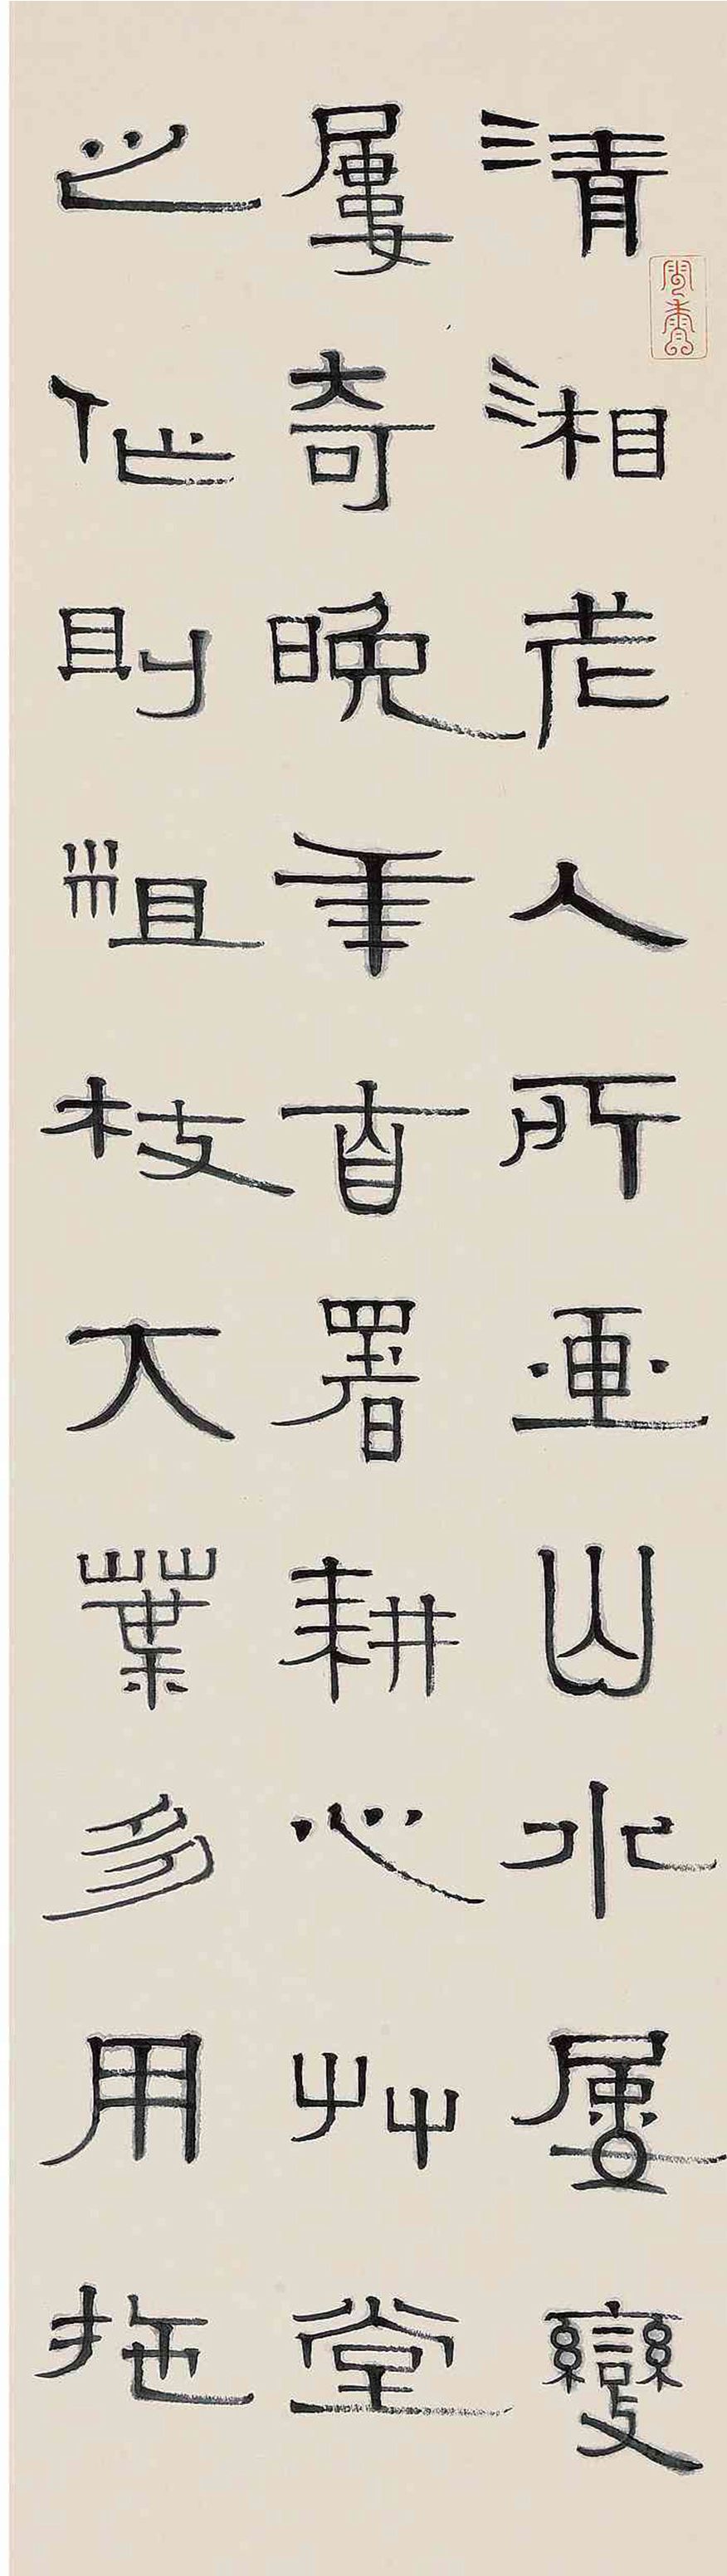 清湘老人所画山水屡变
屡奇晚年自署耕心艸堂
之作则粗枝大叶多用拖